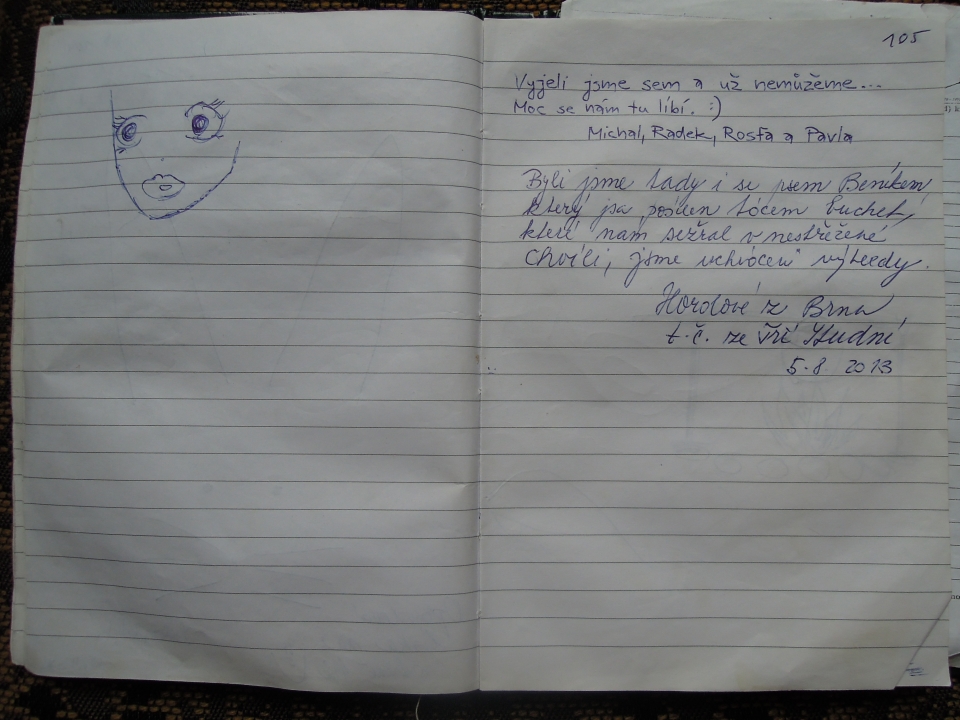 105
Vyjeli jsme sem a už nemůžeme...
Moc se nám tu líbí. :)
Michal, Radek, Rosťa a Pavla
Byli jsme tady i se psem Beníkem,
který jsa buchet,
které nám sežral v nestřežené
chvíli, jsme uchváceni výhledy.
z Brna
t.č. ze Studní
5.8 2013